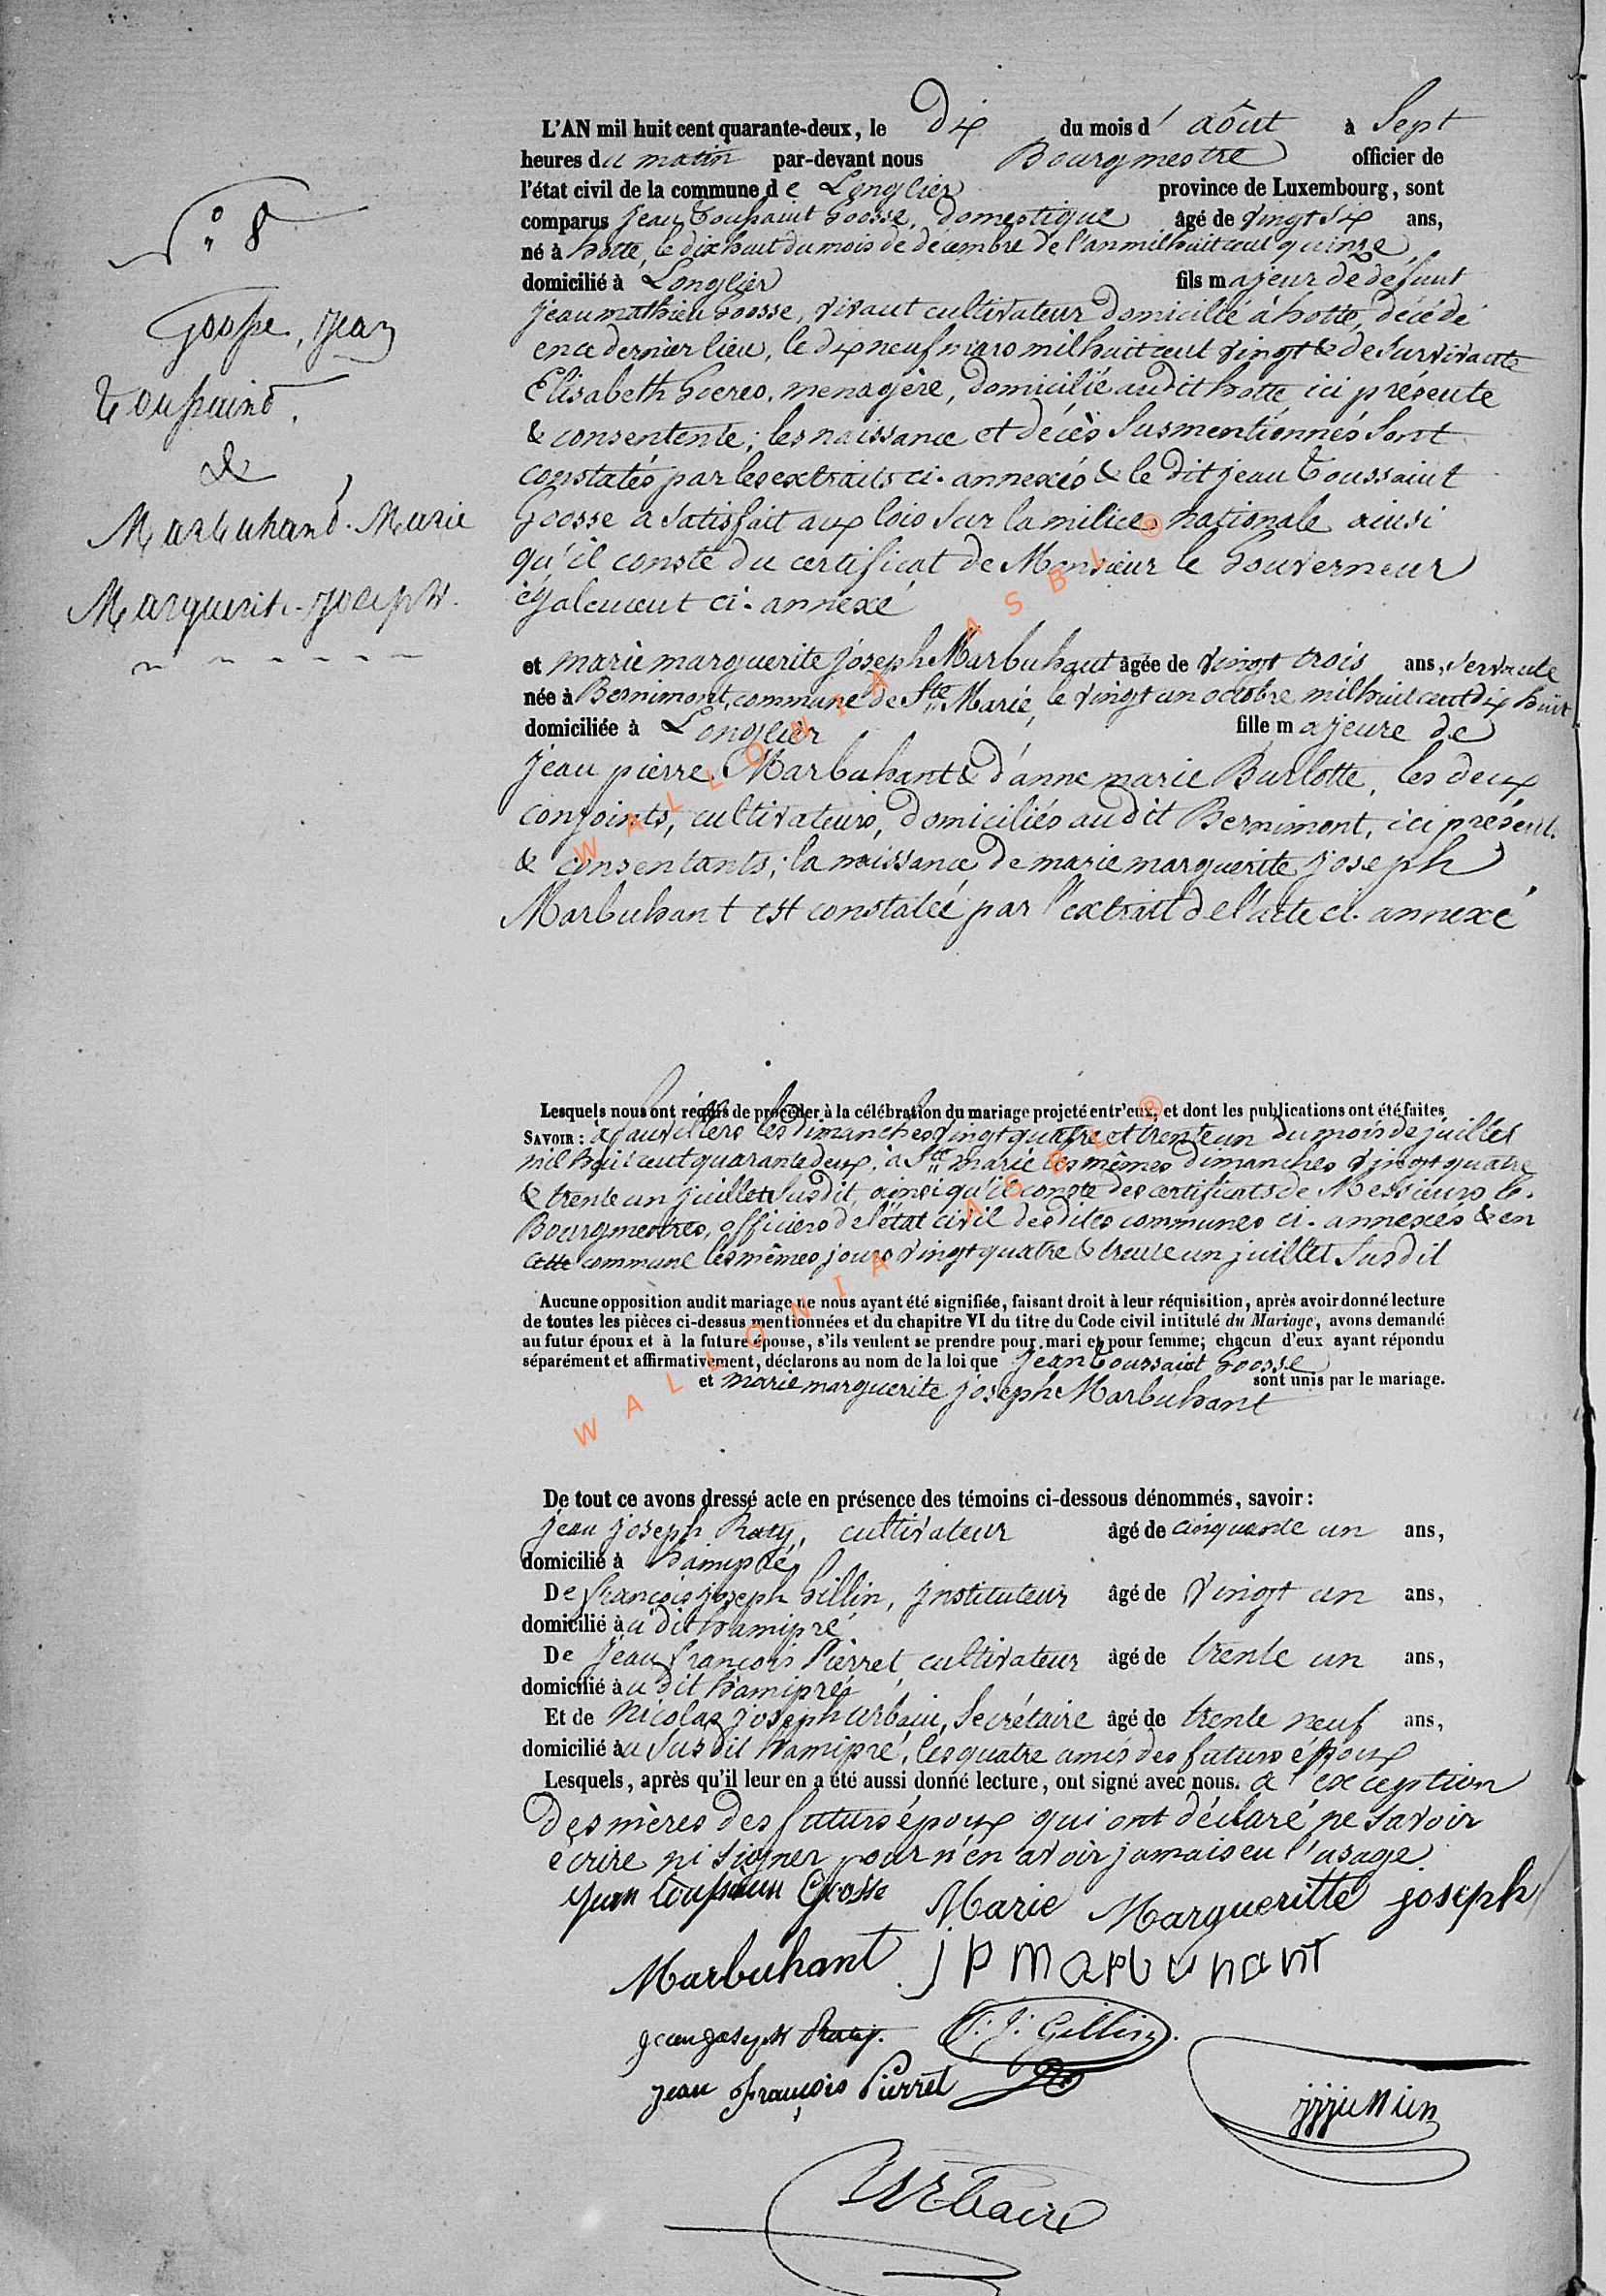 N° 8
Goosse, Jean
Toussaint.
&
Marbuhant. Marie
Marguerite-Joseph.
L'AN mil huit cent quarante-deux, le Dix du mois d' août à Sept
heures du matin par-devant nous Bourgmestre officier de
l'état civil de la commune de Longlier province de Luxembourg, sont
comparus jean Toussaint Goosse, domestique âgé de vingt six ans,
né à hotte, le dix huit du mois de décembre de l'an mil huit cent quinze,
domicilié à Longlier fils majeur de defunt
jean mathieu Goosse, vivant cultivateur domicilié à hotte, décédé
en ce dernier lieu, le dix neuf mars mil huit cent vingt & de survivante
Elisabeth Goeres, menagère, domicilié audit hotte ici présente
& consentente; les naissance et décès susmentionnés sont
constatés par les extraits ci-annexés & le dit jean Toussaint
Goosse a satisfait aux lois sur la milice nationale ainsi
qu'il conste du certificat de Monsieur le Gouverneur
également ci-annexé
et marie marguerite joseph Marbuhant âgée de vingt trois ans, servante
née à Bernimont, commune de Ste Marie, le vingt un octobre mil huit cent dix huit
domiciliée à Longlier fille majeure de
jean pierre Marbuhant & d'anne marie Burlotte, les deux
conjoints, cultivateurs, domiciliés audit Bernimont, ici présent.
& consentants; la naissance de marie marguerite joseph
Marbuhant est constatée par l'extrait de l'acte ci-annexé
Lesquels nous ont requis de procéder à la célébration du mariage projeté entr'eux, et dont les publications ont été faites
SAVOIR: à fauvillers les dimanches vingt quatre et trente un du mois de juillet
mil huit cent quarante deux, à Ste marie les mêmes dimanches vingt quatre
& trente un juillet susdit, ainsi qu'il conste des certificats de Messieurs le.
Bourgmestres, officiers de l'état civil desdites communes ci-annexés & en
cette commune les mêmes jours vingt quatre & trente un juillet susdit
Aucune opposition audit mariage ne nous ayant été signifiée, faisant droit à leur réquisition, après avoir donné lecture
de toutes les pièces ci-dessus mentionnées et du chapitre VI du titre du Code civil intitulé du Mariage, avons demandé
au futur époux et à la future épouse, s'ils veulent se prendre pour mari et pour femme; chacun d'eux ayant répondu
séparément et affirmativement, déclarons au nom de la loi que jean Toussaint Goosse
et marie marguerite joseph Marbuhant sont unis par le mariage.
De tout ce avons dressé acte en présence des témoins ci-dessous dénommés, savoir:
jean joseph Raty, cultivateur âgé de cinquante un ans,
domicilié à hamipré,
De françois joseph Gillin, instituteur âgé de vingt un ans,
domicilié audit hamipré
De jean françois Pierret, cultivateur âgé de trente un ans,
domicilié audit hamipré,
Et de Nicolas joseph Urbain, Secrétaire âgé de trente neuf ans,
domicilié au susdit hamipré, les quatre amis des futurs époux
Lesquels, après qu'il leur en a été aussi donné lecture, ont signé avec nous. à l'exception
des mères des futurs époux qui ont déclaré ne savoir
écrire ni signer pour n'en avoir jamais eu l'usage.
Jean Toussaint Goosse Marie Margueritte joseph
Marbuhant JP Marbuhant
jean joseph Raty. F. J. Gillin.
jean françois Pierret
Urbain
WALLONIA ASBL ®
WALLONIA ASBL ®